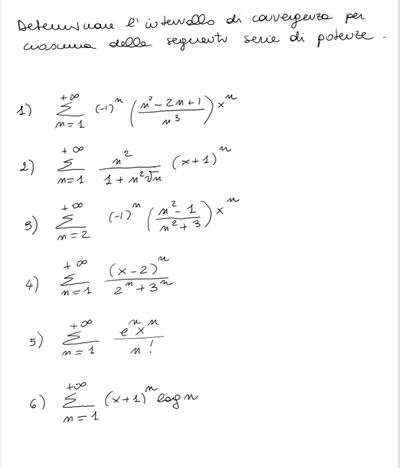 Determinare l'intervallo di convergenza per
ciascuna delle seguenti serie di potenze.
1) \sum_{n=1}^{+\infty} (-1)^n \left( \frac{n^2-2n+1}{n^3} \right) x^n
2) \sum_{n=1}^{+\infty} \frac{n^2}{1+n^2\sqrt{n}} (x+1)^n
3) \sum_{n=2}^{+\infty} (-1)^n \left( \frac{n^2-1}{n^2+3} \right) x^n
4) \sum_{n=1}^{+\infty} \frac{(x-2)^n}{2^n+3^n}
5) \sum_{n=1}^{+\infty} \frac{e^n x^n}{n!}
6) \sum_{n=1}^{+\infty} (x+1)^n log n